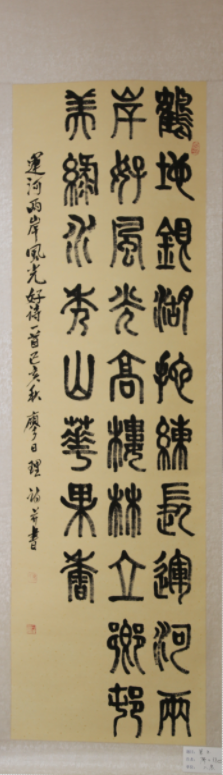 鶴地銀湖拖練長運河兩
岸好風光高樓林立鄉邨
美綠水秀山華果香
運河兩岸風光好詩一首己亥秋廖日理詩并書